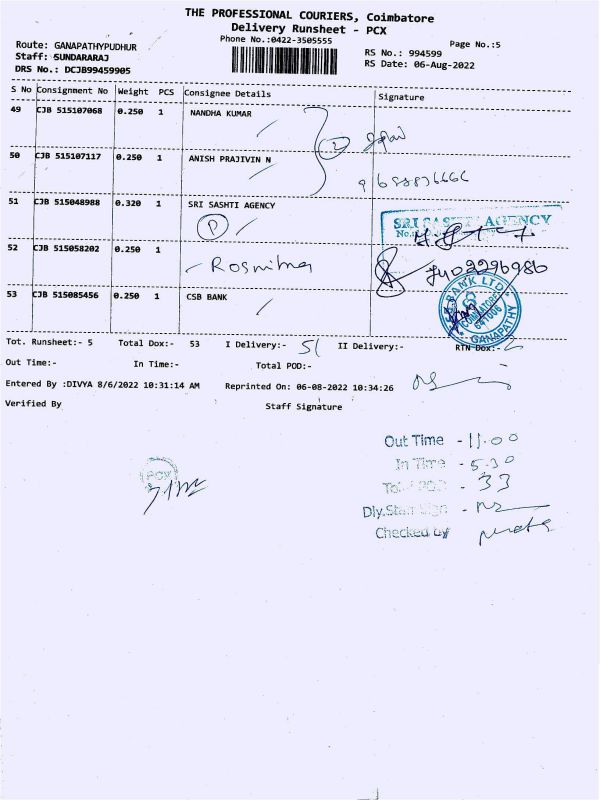 THE PROFESSIONAL COURIERS, Coimbatore
Delivery Runsheet - PCX
Phone No.:0422-3505555
Page No.:5
Route: GANAPATHYPUDHUR
RS No.: 994599
Staff: SUNDARARAJ
RS Date: 06-Aug-2022
DRS No.: DCJB99459905
S No Consignment No Weight PCS Consignee Details Signature
49 CJB 515107068 0.250 1 NANDHA KUMAR
2
50 CJB 515107117 0.250 1 ANISH PRAJIVIN N
51 CJB 515048988 0.320 1 SRI SASHTI AGENCY
P
SRI SASHTI AGENCY
52 CJB 515058202 0.250 1
53 CJB 515085456 0.250 1 CSB BANK
BANK LTD
COIMBATORE
641006
GANAPATHY
Tot. Runsheet:- 5 Total Dox:- 53 I Delivery:- 51 II Delivery:- RTN Dox:- 2
Out Time:- In Time:- Total POD:-
Entered By :DIVYA 8/6/2022 10:31:14 AM Reprinted On: 06-08-2022 10:34:26
Verified By Staff Signature
Out Time - 11.00
In Time - 5.30
Total POD - 33
PCX
Dly.Staff Sign -
Checked by